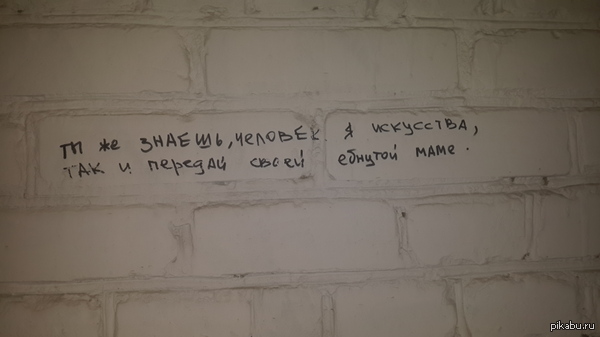 ты же ЗНАЕШЬ, ЧЕЛОВЕК Я ИСКУССТВА,
ТАК и передай своей ебнутой маме.
pikabu.ru